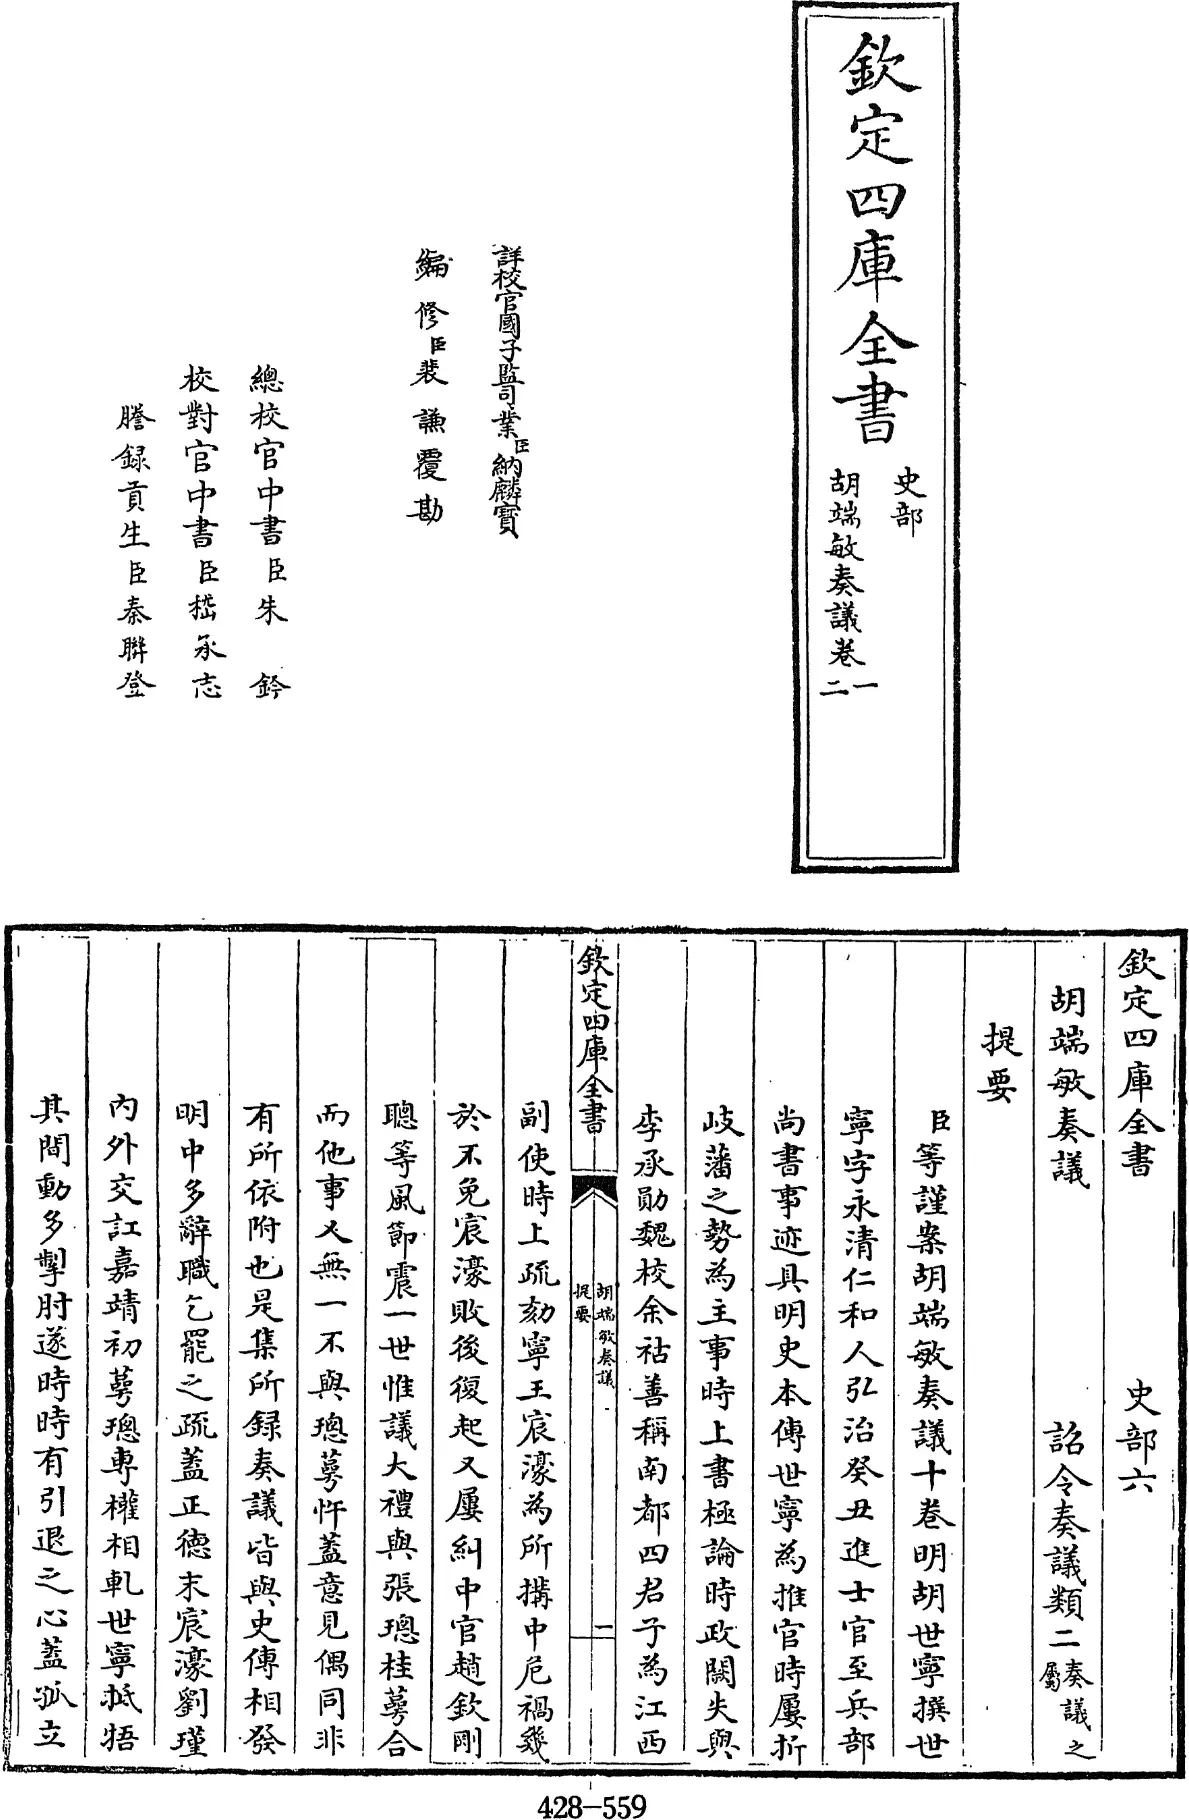 欽定四庫全書
史部
胡端敏奏議卷一
二
詳校官國子監司業臣納麟寶
編修臣裴謙覆勘
總校官中書臣朱鈐
校對官中書臣嵇承志
謄録貢生臣秦聯登
欽定四庫全書 史部六
胡端敏奏議 詔令奏議類二奏議之屬
提要
臣等謹案胡端敏奏議十卷明胡世寧撰世
寧字永清仁和人弘治癸丑進士官至兵部
尚書事迹具明史本傳世寧為推官時屢折
岐藩之勢為主事時上書極論時政闕失與
李承勛魏校余祜善稱南都四君子為江西
欽定四庫全書
胡端敏奏議
提要
一
副使時上疏劾寧王宸濠為所搆中危禍幾
於不免宸濠敗後復起又屢糾中官趙欽剛
聰等風節震一世惟議大禮與張璁桂萼合
而他事乂無一不與璁萼忤蓋意見偶同非
有所依附也是集所録奏議皆與史傳相發
明中多辭職乞罷之疏蓋正德末宸濠劉瑾
內外交訌嘉靖初萼璁専權相軋世寧抵牾
其間動多掣肘遂時時有引退之心蓋孤立
428-559